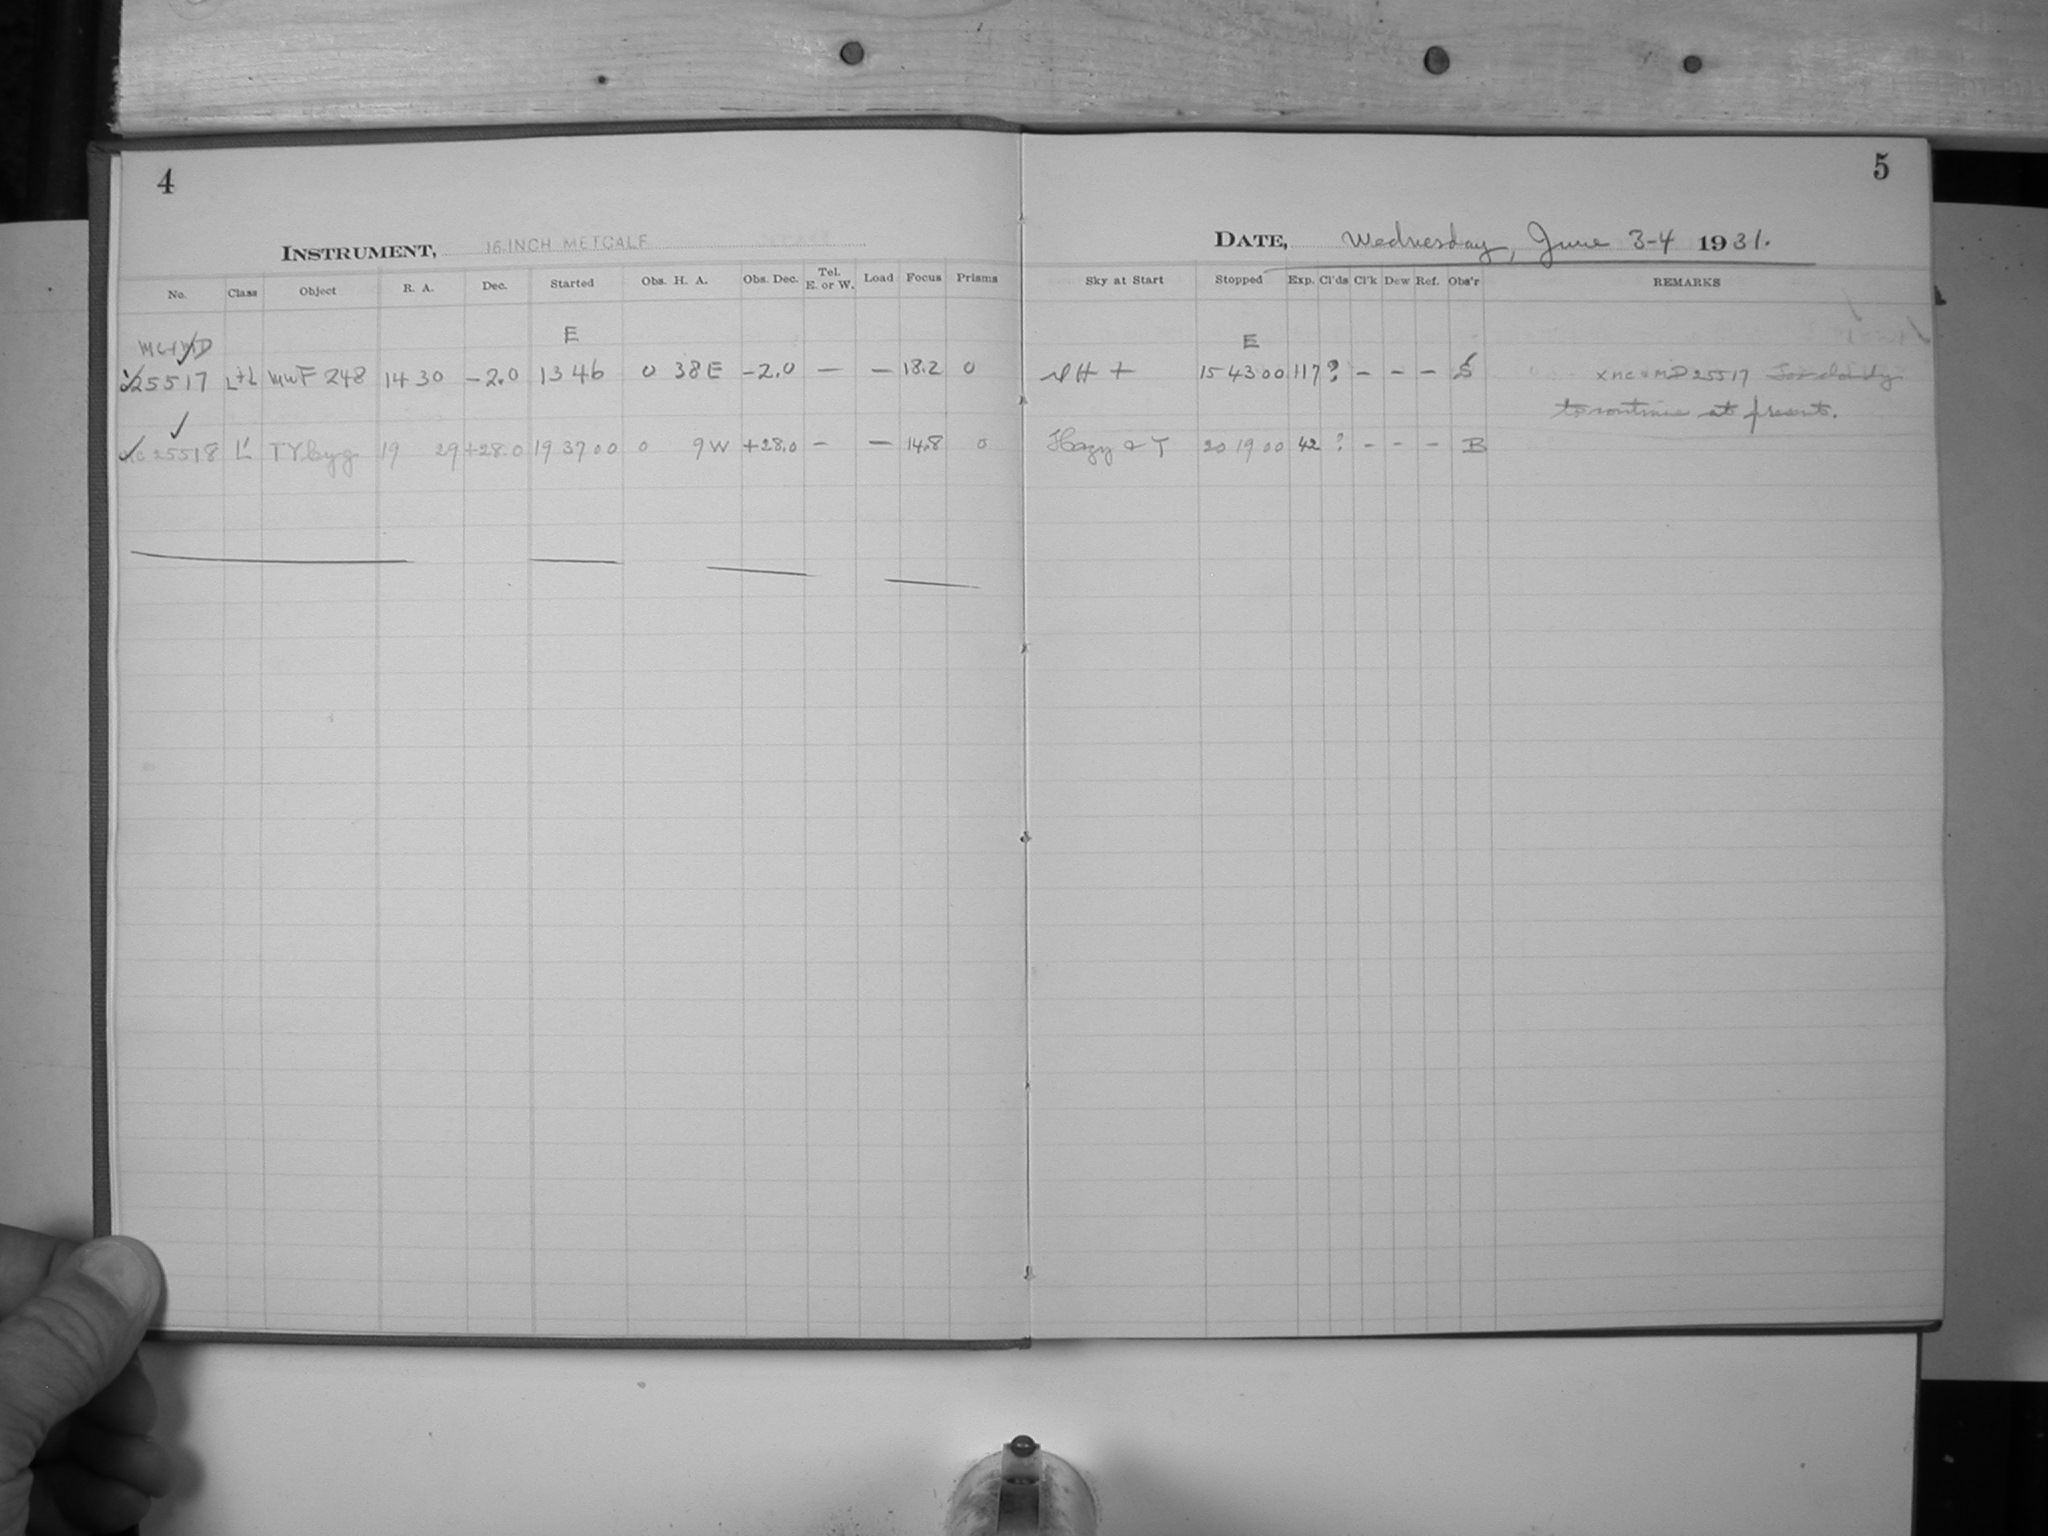 4
INSTRUMENT, 16 INCH METCALF
No. Class Object R. A. Dec. Started Obs. H. A. Obs. Dec. Tel. E. or W. Load Focus Prisms
MC+MD E
25517 L+L MWF 248 14 30 -2.0 13 46 0 38 E -2.0 — — 18.2 0
MC 25518 L' TY Cyg 19 29 +28.0 19 37 00 0 9 W +28.0 — — 14.8 0
5
DATE, Wednesday, June 3-4 1931.
Sky at Start Stopped Exp. Cl'ds Cl'k Dew Ref. Obs'r REMARKS
E
H + 15 43 00 117 ? - - - S x MC & MD 25517 Too cloudy
to continue at present.
Hazy & T 20 19 00 42 ? - - - B